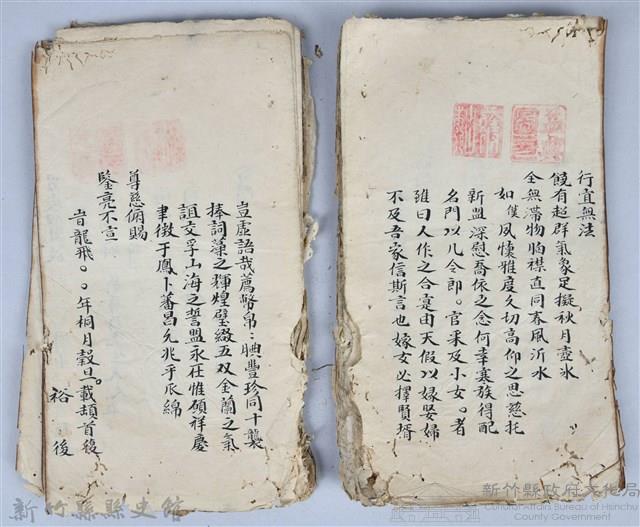 行宜無法
饒有超群氣象足擬秋月壺氷
全無滯物胸襟直同春風沂水
如僕風懷雅度久切高仰之思茲托
新盟深慰喬依之念何幸寒族得配
名門以几令郎。官采及小女。者
雖曰人作之合寔由天假以嫁娶婦
不及吾家信斯言也嫁女必擇賢壻
豈虛語哉薦幣帛之腆豐珍同十襲
捧詞藻之輝煌璧綴五双金蘭之氣
誼交孚山海之誓盟永在惟願祥慶
聿徵于鳳卜蕃昌允兆乎瓜綿
尊慈俯賜
鋻亮不宣
旹龍飛。。年桐月穀旦。載頡首
裕後
新竹縣縣史館
新竹縣政府文化局
Cultural Affairs Bureau of Hsinchu
County Government